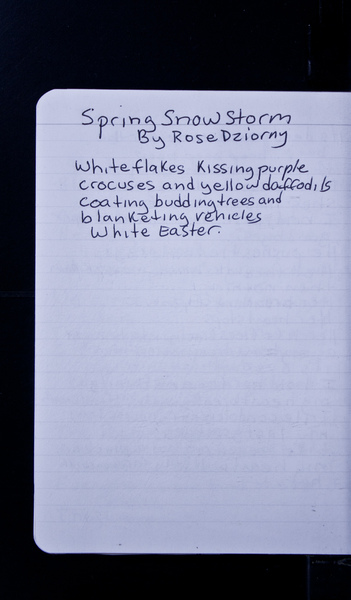 Spring Snow Storm
By Rose Dziorny
White flakes kissing purple
crocuses and yellow daffodils
coating budding trees and
blanketing vehicles
White Easter.